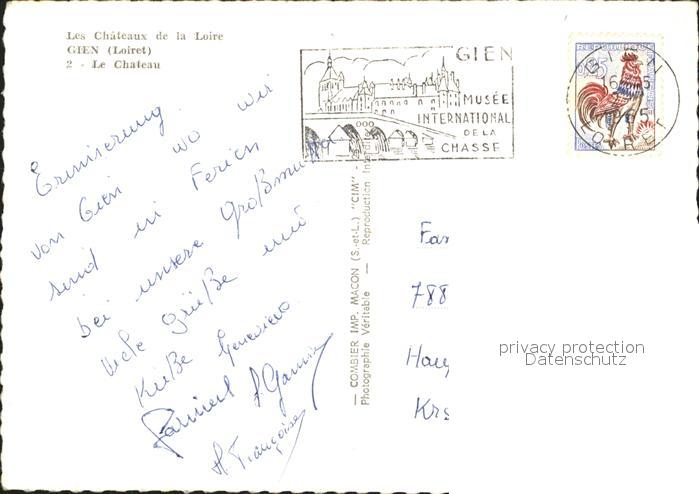 Les Châteaux de la Loire
GIEN (Loiret)
2 - Le Chateau
GIEN
MUSÉE
INTERNATIONAL
DE LA
CHASSE
GIEN
LOIRET
Erinnerung
von Gien wo wir
sind in Ferien
bei unsere Großmutter
Viele Grüße und
Küße
Françoise
— COMBIER IMP. MACON (S.-et-L.) "CIM" -
Photographie Véritable — Reproduction
Fam
788
Krs
privacy protection
Datenschutz